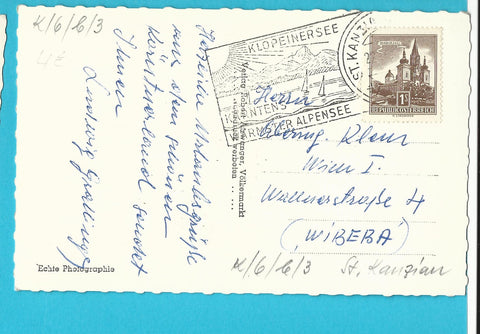 K/6/6/3
4€
Herzliche Urlaubsgrüße
aus dem schönen
Kärntnerland sendet
Ihnen
Ludwig
KLOPEINERSEE
KÄRNTENS
WÄRMSTER ALPENSEE
ST. KANZIAN
1S
REPUBLIK ÖSTERREICH
Völkermarkt
verboten
Herrn
Wien I.
Wallnerstraße 4
(WIBEBA)
Echte Photographie
K/6/6/3 St. Kanzian